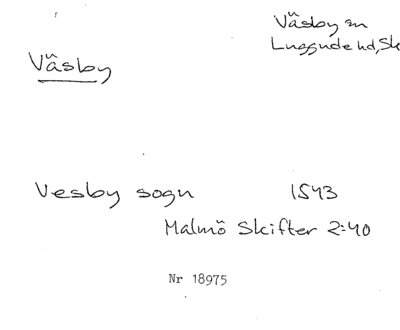 Väsby sn
Luggude hd, Sk
Väsby
Vesby sogn 1543
Malmö Skifter 2:40
Nr 18975